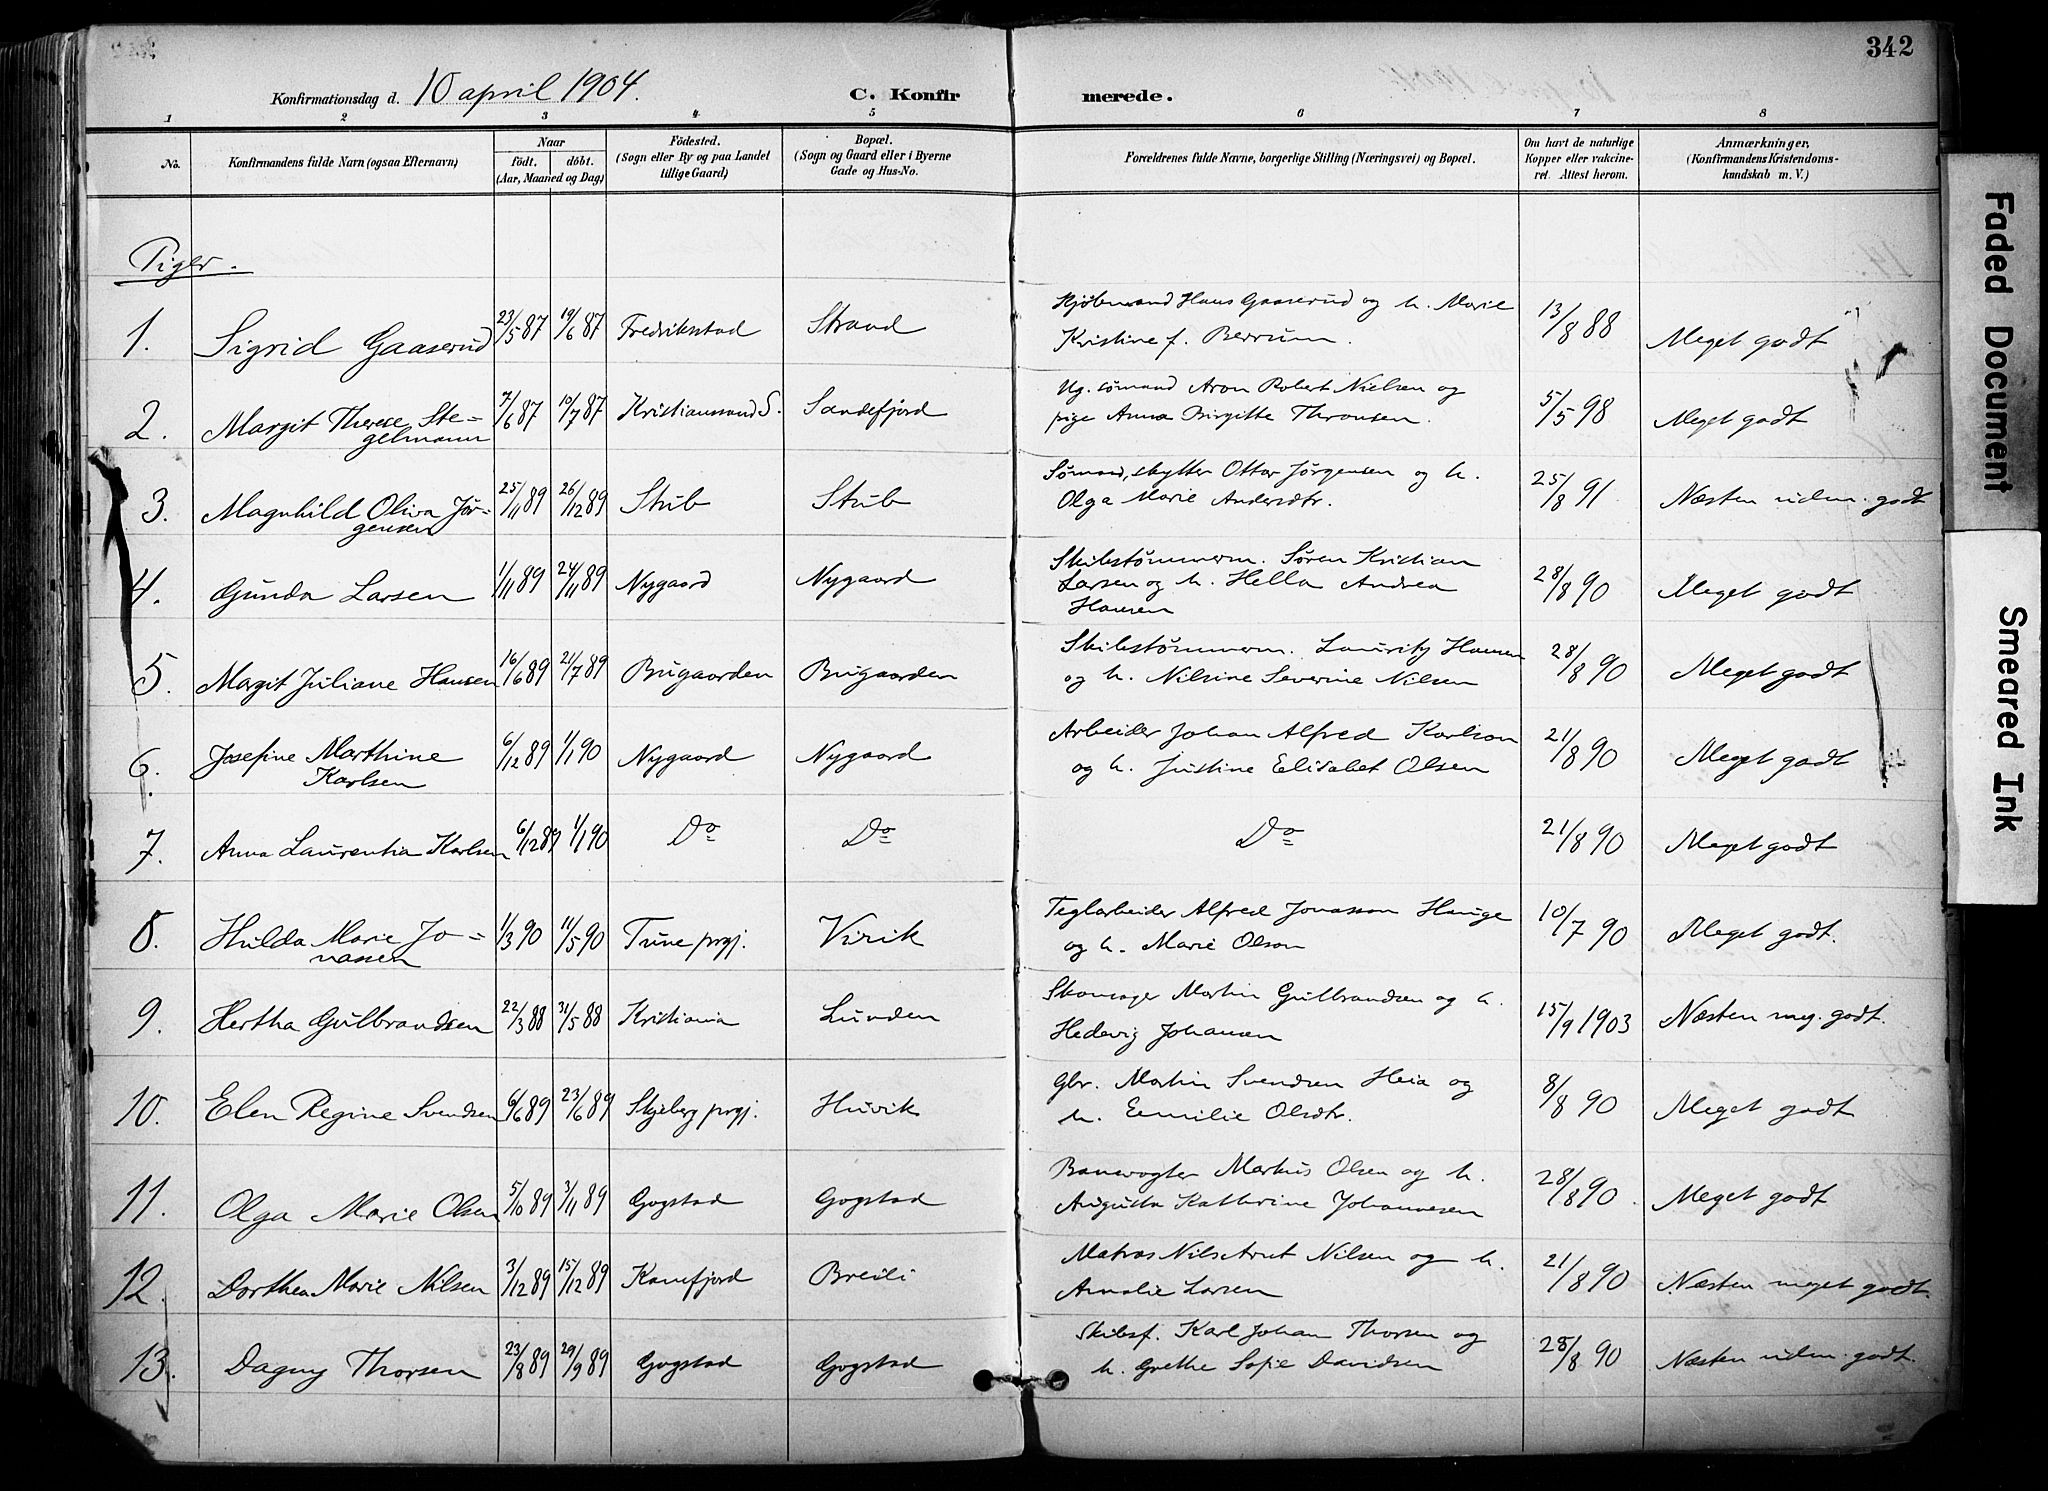 342
Konfirmationsdag d. 10 april 1904.
C. Konfirmerede.
1 2 3 4 5 6 7 8
No.
Konfirmandens fulde Navn (ogsaa Efternavn)
Naar
födt. döbt.
(Aar, Maaned og Dag)
Födested.
(Sogn eller By og paa Landet
tillige Gaard)
Bopæl.
(Sogn og Gaard eller i Byerne
Gade og Hus-No.
Forældrenes fulde Navne, borgerlige Stilling (Næringsvei) og Bopæl.
Om havt de naturlige
Kopper eller vakcine-
ret. Attest herom.
Anmærkninger.
(Konfirmandens Kristendoms-
kundskab m. V.)
Piger.
1. Sigrid Gaaserud 23/5 87 19/6 87 Fredrikstad Strand Kjøbmand Hans Gaaserud og h. Marie
Kristine f. Berrum. 13/8 88 Meget godt
2. Margit Therese Ste-
gelmann 7/6 87 10/7 87 Kristianssand S. Sandefjord Ug. sømand Aron Robert Nielsen og
pige Anna Birgitte Thronsen. 5/5 98 Meget godt
3. Magnhild Oliva Jör-
gensen 25/11 89 26/12 89 Stub Stub Sømand, skytter Ottar Jørgensen og h.
Olga Marie Andersdtr. 25/8 91 Næsten udm. godt
4. Gunda Larsen 1/11 89 24/11 89 Nygaard Nygaard Skibstømmerm. Søren Kristian
Larsen og h. Hella Andrea
Hansen 28/8 90 Meget godt
5. Margit Juliane Hansen 16/6 89 21/7 89 Bugaarden Bugaarden Skibstømmerm. Lauritz Hansen
og h. Nilsine Severine Nilsen 28/8 90 Meget godt
6. Josefine Marthine
Karlsen 6/12 89 1/1 90 Nygaard Nygaard Arbeider Johan Alfred Karlson
og h. Justine Elisabet Olsen 21/8 90 Meget godt
7. Anna Laurentia Karlsen 6/12 89 1/1 90 Do Do Do 21/8 90 Meget godt
8. Hulda Marie Jo-
nassen 1/3 90 11/5 90 Tune prgj. Virik Teglarbeider Alfred Jonasson Hauge
og h. Marie Olson 10/7 90 Meget godt.
9. Hertha Gulbrandsen 22/3 88 31/5 88 Kristiania Lunden Skomager Martin Gulbrandsen og h.
Hedevig Johansen 15/9 1903 Næsten meg. godt.
10. Elen Regine Svendsen 6/6 89 23/6 89 Skjeberg prgj. Huvik Gbr. Martin Svendsen Heia og
h. Emilie Olsdtr. 8/8 90 Meget godt
11. Olga Marie Olsen 5/10 89 3/11 89 Gogstad Gogstad Banevogter Markus Olsen og h.
Augusta Kathrine Johannesen 28/8 90 Meget godt
12. Dorthea Marie Nilsen 3/12 89 15/12 89 Kamfjord Breili Matros Nils Arnt Nilsen og h.
Amalie Larsen 21/8 90 Næsten meget godt.
13. Dagny Thorsen 23/8 89 29/9 89 Gogstad Gogstad Skibsf. Karl Johan Thorsen og
h. Grethe Sofie Davidsen 28/8 90 Næsten udm. godt.
Faded Document
Smeared Ink